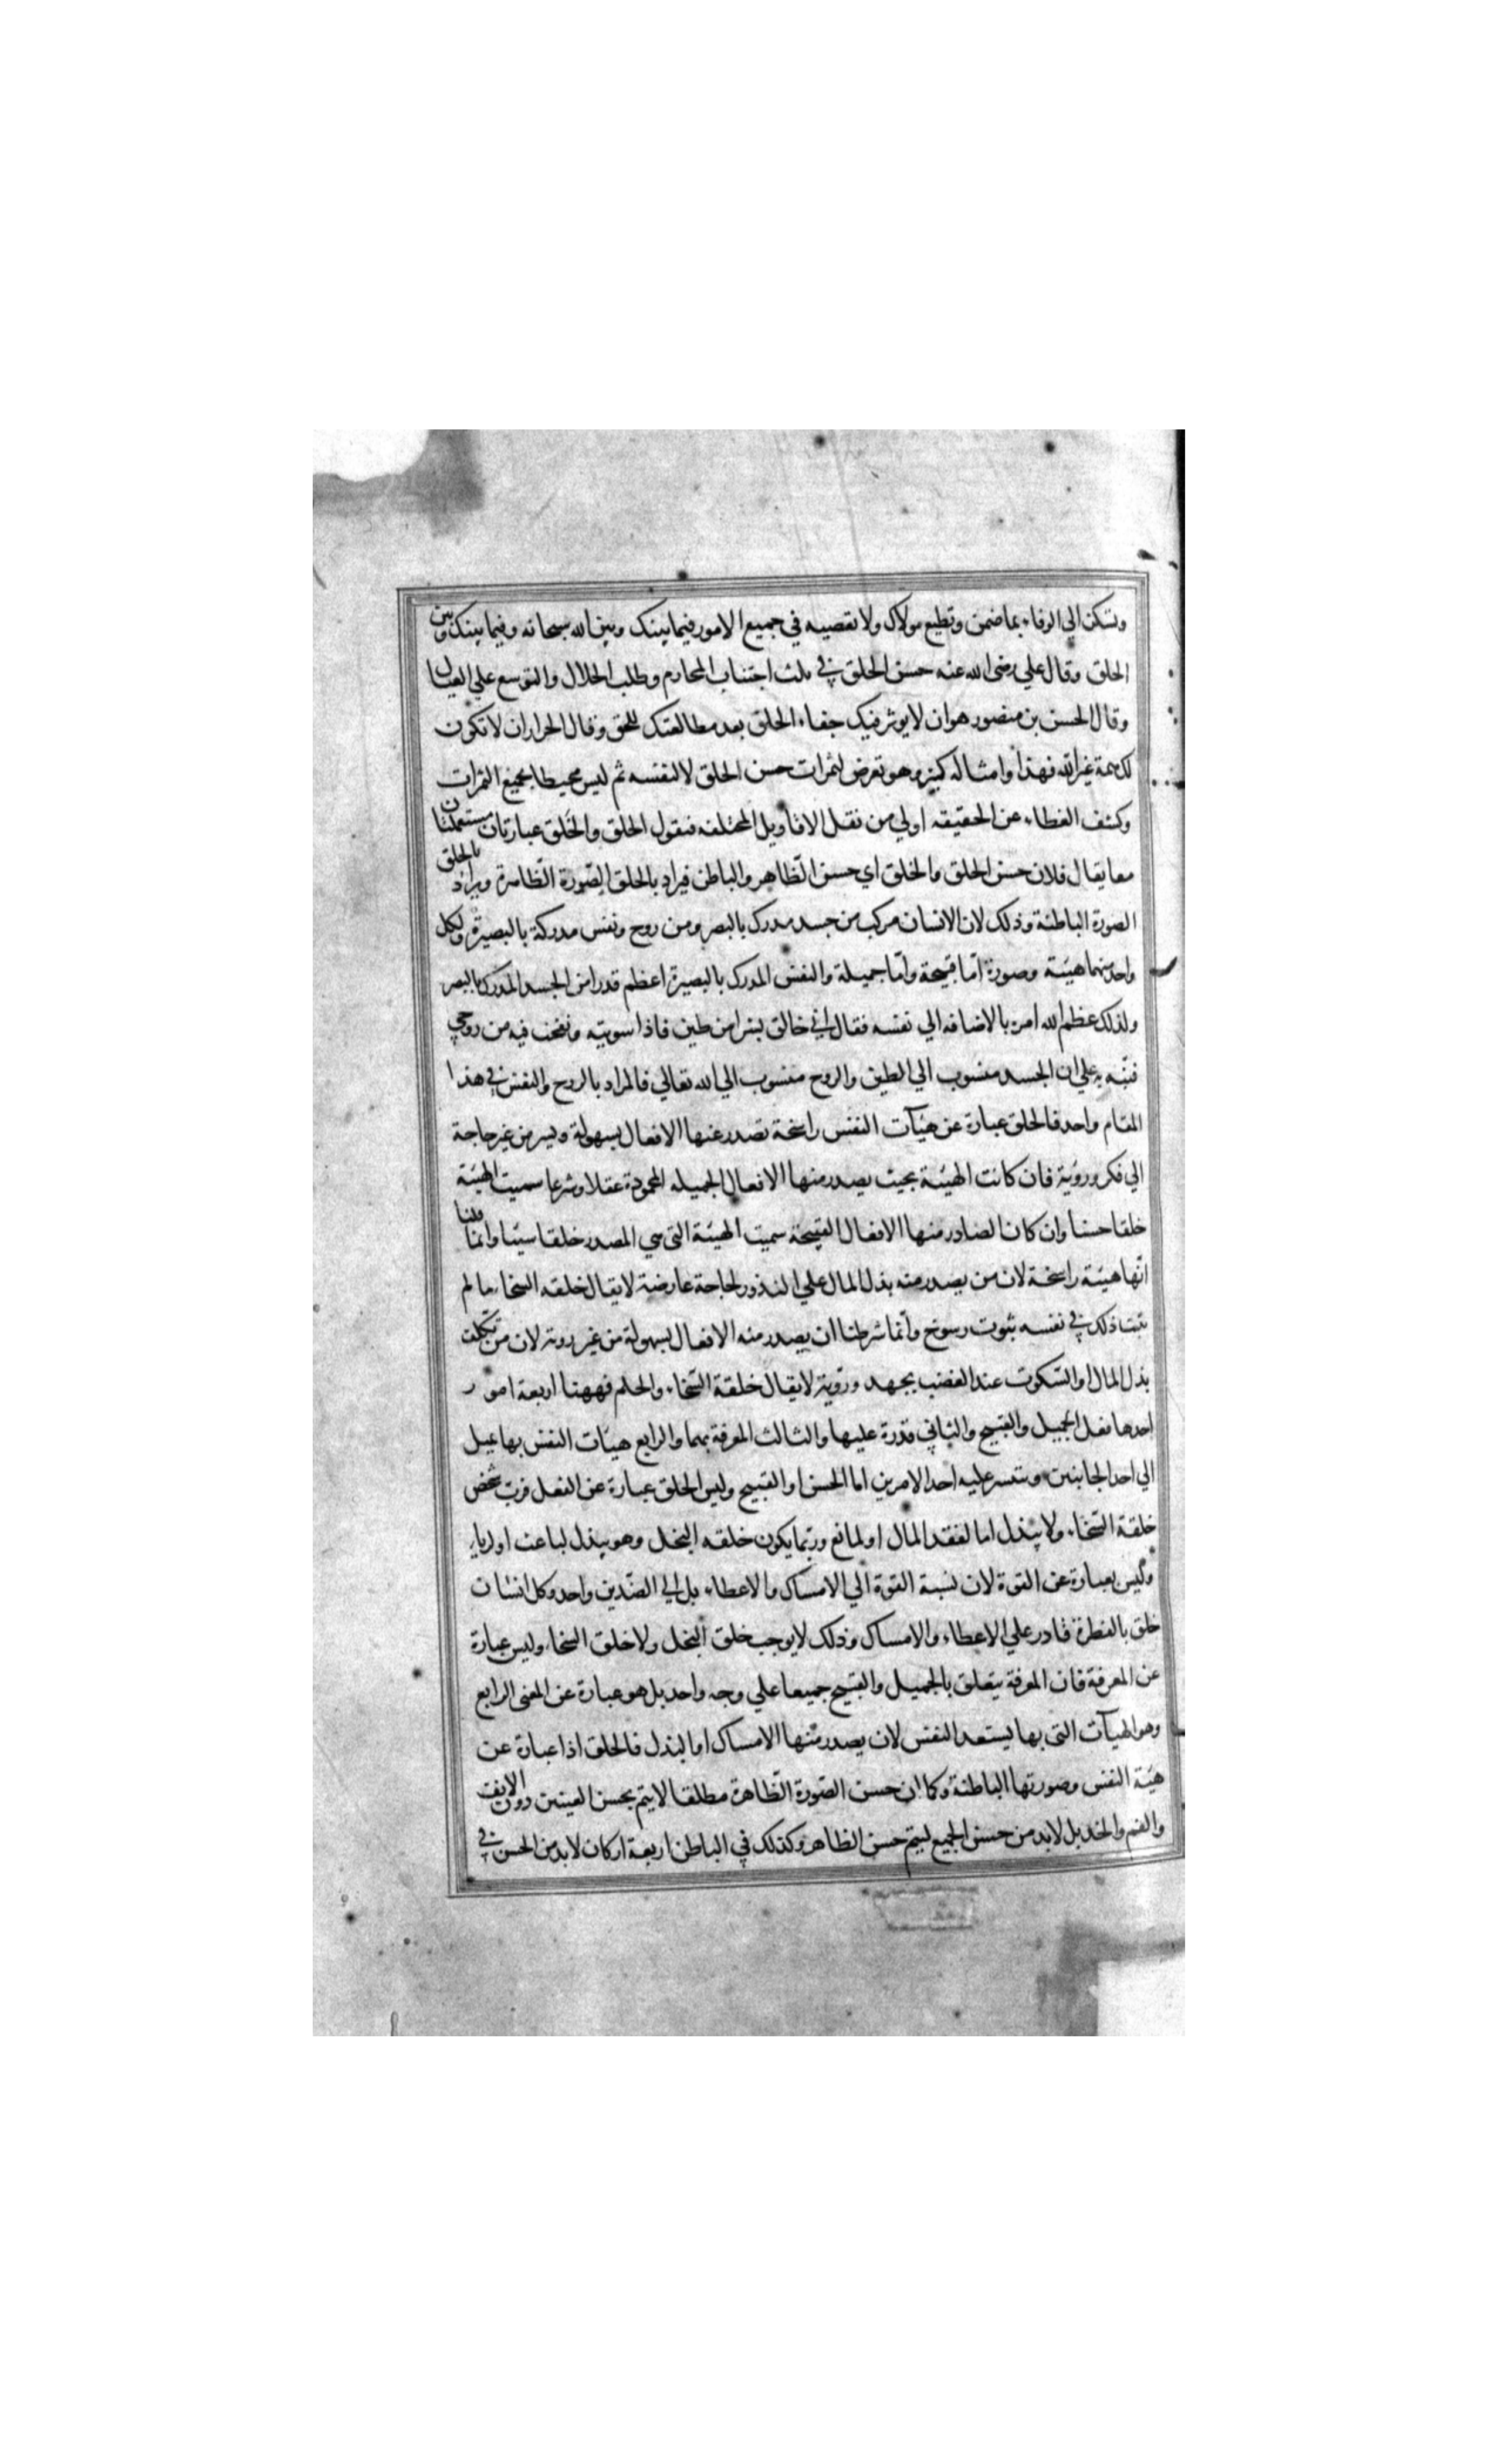 وتسكن الي الوفاء بما ضمن وتطيع مولاك ولا تعصيه في جميع الامور فيما بينك وبين الله سبحانه وفيما بينك وبين
الخلق وقال علي رضي الله عنه حسن الخلق في ثلث اجتناب المحارم وطلب الحلال والتوسع علي العيال
وقال الحسن بن منصور هو ان لا يوثر فيك جفاء الخلق بعد مطالعتك للحق وقال الخراز ان لا تكون
لك همة غير الله فهذا وامثاله كثير وهو تعرض لثمرات حسن الخلق لا لنفسه ثم ليس محيطا بجميع الثمرات
وكشف الغطاء عن الحقيقه اولي من نقل الاقاويل المختلفه فنقول الخلق والخَلق عبارتان مستعملتان
معا يقال فلان حسن الخلق والخلق اي حسن الظاهر والباطن فيراد بالخلق الصّورة الظّاهرة ويراد بالخلق
الصورة الباطنة وذلك لان الانسان مركب من جسد مدرك بالبصر ومن روح ونفس مدركة بالبصيرة ولكل
واحد منهما هيئة وصورة امّا قبيحة وامّا جميلة والنفس المدرك بالبصيرة اعظم قدرا من الجسد المدرك بالبصر
ولذلك عظم الله امره بالاضافه الي نفسه فقال اني خالق بشرا من طين فاذا سويته ونفخت فيه من روحي
فنبّه به علي ان الجسد منسوب الي الطين والروح منسوب الي الله تعالي فالمراد بالروح والنفس في هذا
المقام واحد فالخلق عبارة عن هيآت النفس راسخة تصدر عنها الافعال بسهولة ويسر من غير حاجة
الي فكر ورويّة فان كانت الهيئة بحيث يصدر منها الافعال الجميله المحمودة عقلا وشرعا سميت الهيئة
خلقا حسنا وان كان الصادر منها الافعال القبيحة سميت الهيئة التي هي المصدر خلقا سيّئا وانّما قلنا
انّها هيئة راسخة لان من يصدر منه بذل المال علي الندور لحاجة عارضة لا يقال خلقه السخاء ما لم
يثبت ذلك في نفسه ثبوت رسوخ وانّما شرطنا ان يصدر منه الافعال بسهولة من غير روية لان من تكلف
بذل المال او السّكوت عند الغضب بجهد ورويّة لا يقال خلقة السّخاء والحلم فههنا اربعة امور
احدها فعل الجميل والقبيح والثاني قدرة عليها والثالث المعرفة بهما والرابع هيئات النفس بها تميل
الي احد الجانبين ويتسر عليه احد الامرين اما الحسن او القبيح وليس الخلق عبارة عن الفعل فربّ شخص
خلقة السّخاء ولا يبذل اما لفقد المال او لمانع وربّما يكون خلقه البخل وهو يبذل لباعث او لرياء
وليس بعبارة عن القوة لان نسبة القوة الي الامساك والاعطاء بل الي الضّدين واحد وكل انسان
خلق بالفطرة قادر علي الاعطاء والامساك وذلك لا يوجب خلق البخل ولا خلق السخاء وليس عبارة
عن المعرفة فان المعرفة يتعلق بالجميل والقبيح جميعا علي وجه واحد بل هو عبارة عن المعني الرابع
وهو الهيآت التي بها يستعد النفس لان يصدر منها الامساك او البذل فالخلق اذا عبارة عن
هيئة النفس وصورتها الباطنة وكما ان حسن الصّورة الظّاهرة مطلقا لا يتم بحسن العينين دون الانف
والفم والخد بل لا بد من حسن الجميع ليتم حسن الظاهر وكذلك في الباطن اربعة اركان لا بد من الحسن في